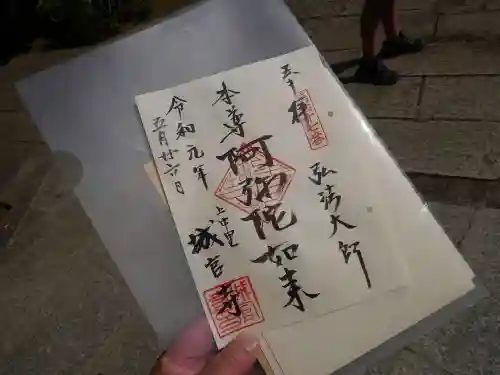 五十
拝
弘法大師
本尊阿弥陀如来
上中里
城官寺
令和元年
五月廿六日